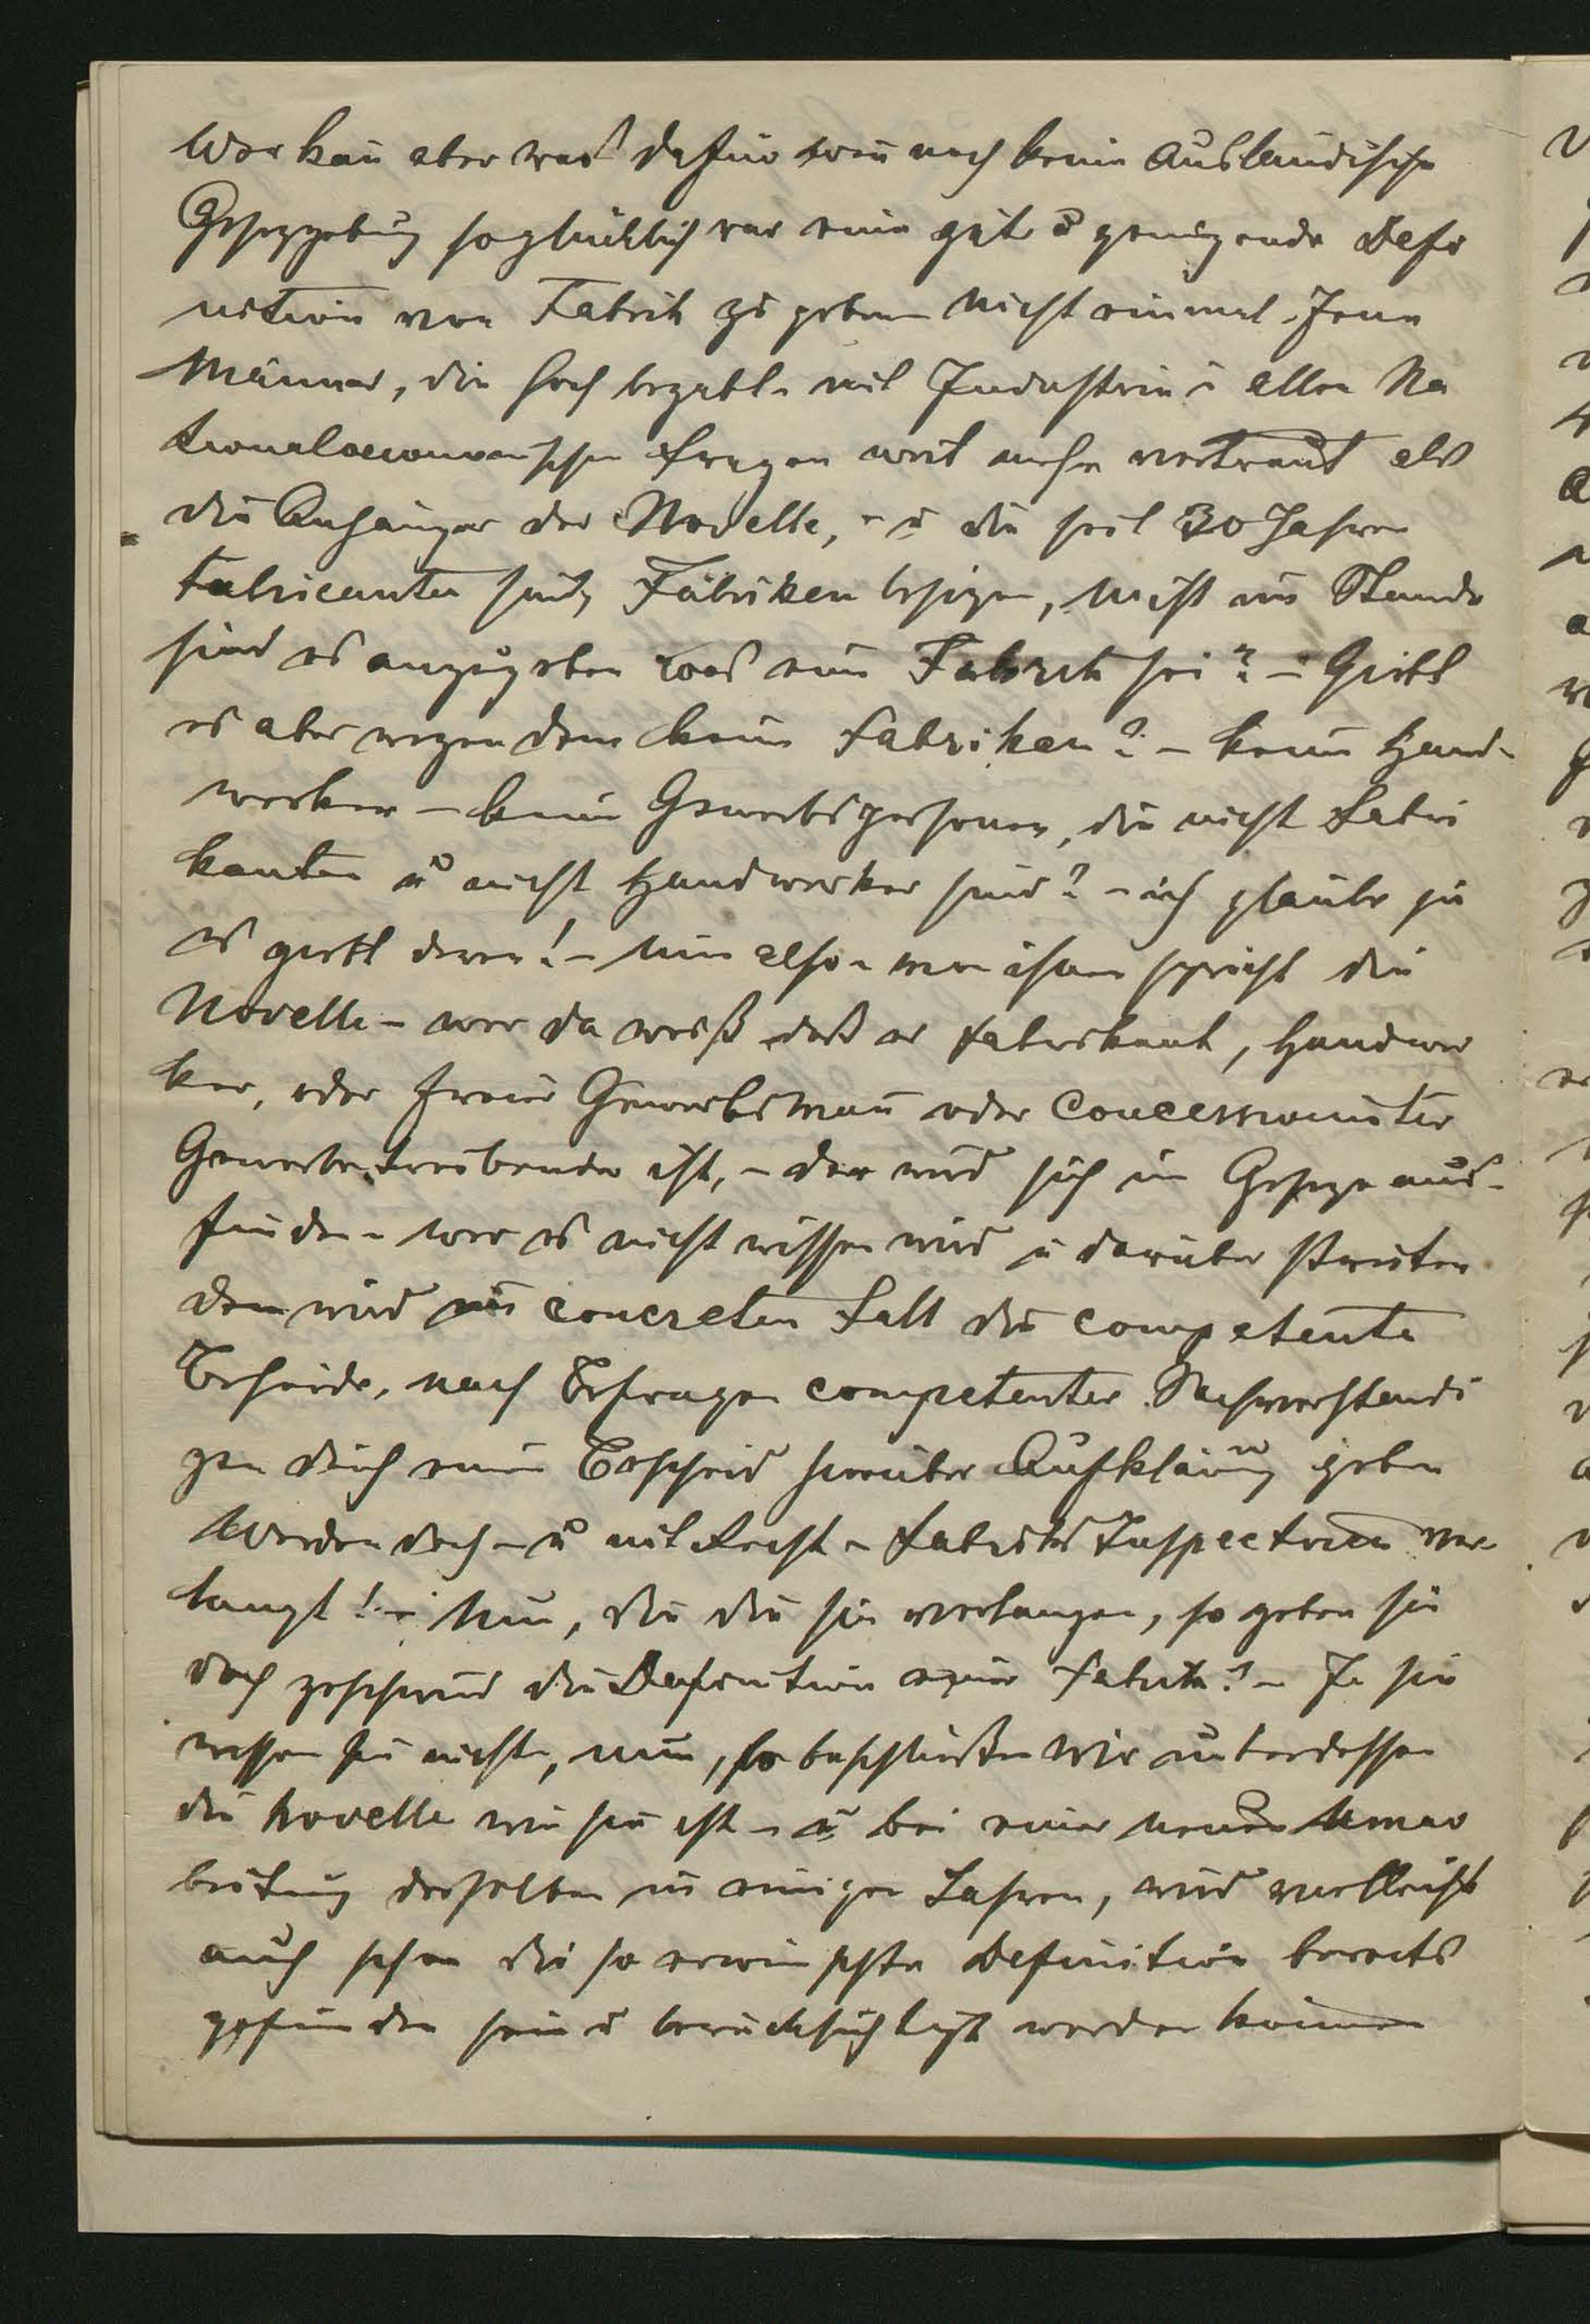 Wer kan̄ aber was dafür wen̄ noch keine ausländische
Gesetzgebung so glücklich war eine gute u genügende Defi
nition von Fabrik zu geben nicht einmal Jene
Männer, die sich bezahlt mit Industrie u allen Na
tionaloeconomischen Fragen weit mehr vertraut als
die Anhänger der Novelle, – u die seit 30 Jahren
Fabricanten sind, Fabriken besitzen, nicht im Stande
sind es anzugeben was eine Fabrik sei? – Giebt
es aber wegen dem keine Fabriken? – keine Hand-
werker – keine Gewerbspersonen, die nicht Fabri
kanten u nicht Handwerker sind? – ich glaube ja
es giebt deren! – Nun also – von ihnen spricht die
Novelle – wer da weiß daß er Fabrikant, Handwer
ker, oder freier Gewerbsman̄ oder Concessionirter
Gewerbetreibender ist, – der wird sich im Gesetze aus-
finden – wer es nicht wissen wird u darüber streiten
dem wird im concreten Fall die competente
Behörde, nach Befragen competenter Sachverständi
gen durch einen Bescheid hierüber Aufklärung geben
Werden doch – u mit Recht – Fabriks Inspectoren ver-
langt! – Nun, die die sie verlangen, so geben sie
doch geschwind die Definition einer Fabrik? – Ja sie
wissen sie nicht, nun, so beschließen wir unterdessen
die Novelle wie sie ist – u bei einer neuen Umar
beitung derselben in einigen Jahren, wird vielleicht
auch schon die so erwünschte Definition bereits
gefunden sein u berücksichtigt werden können